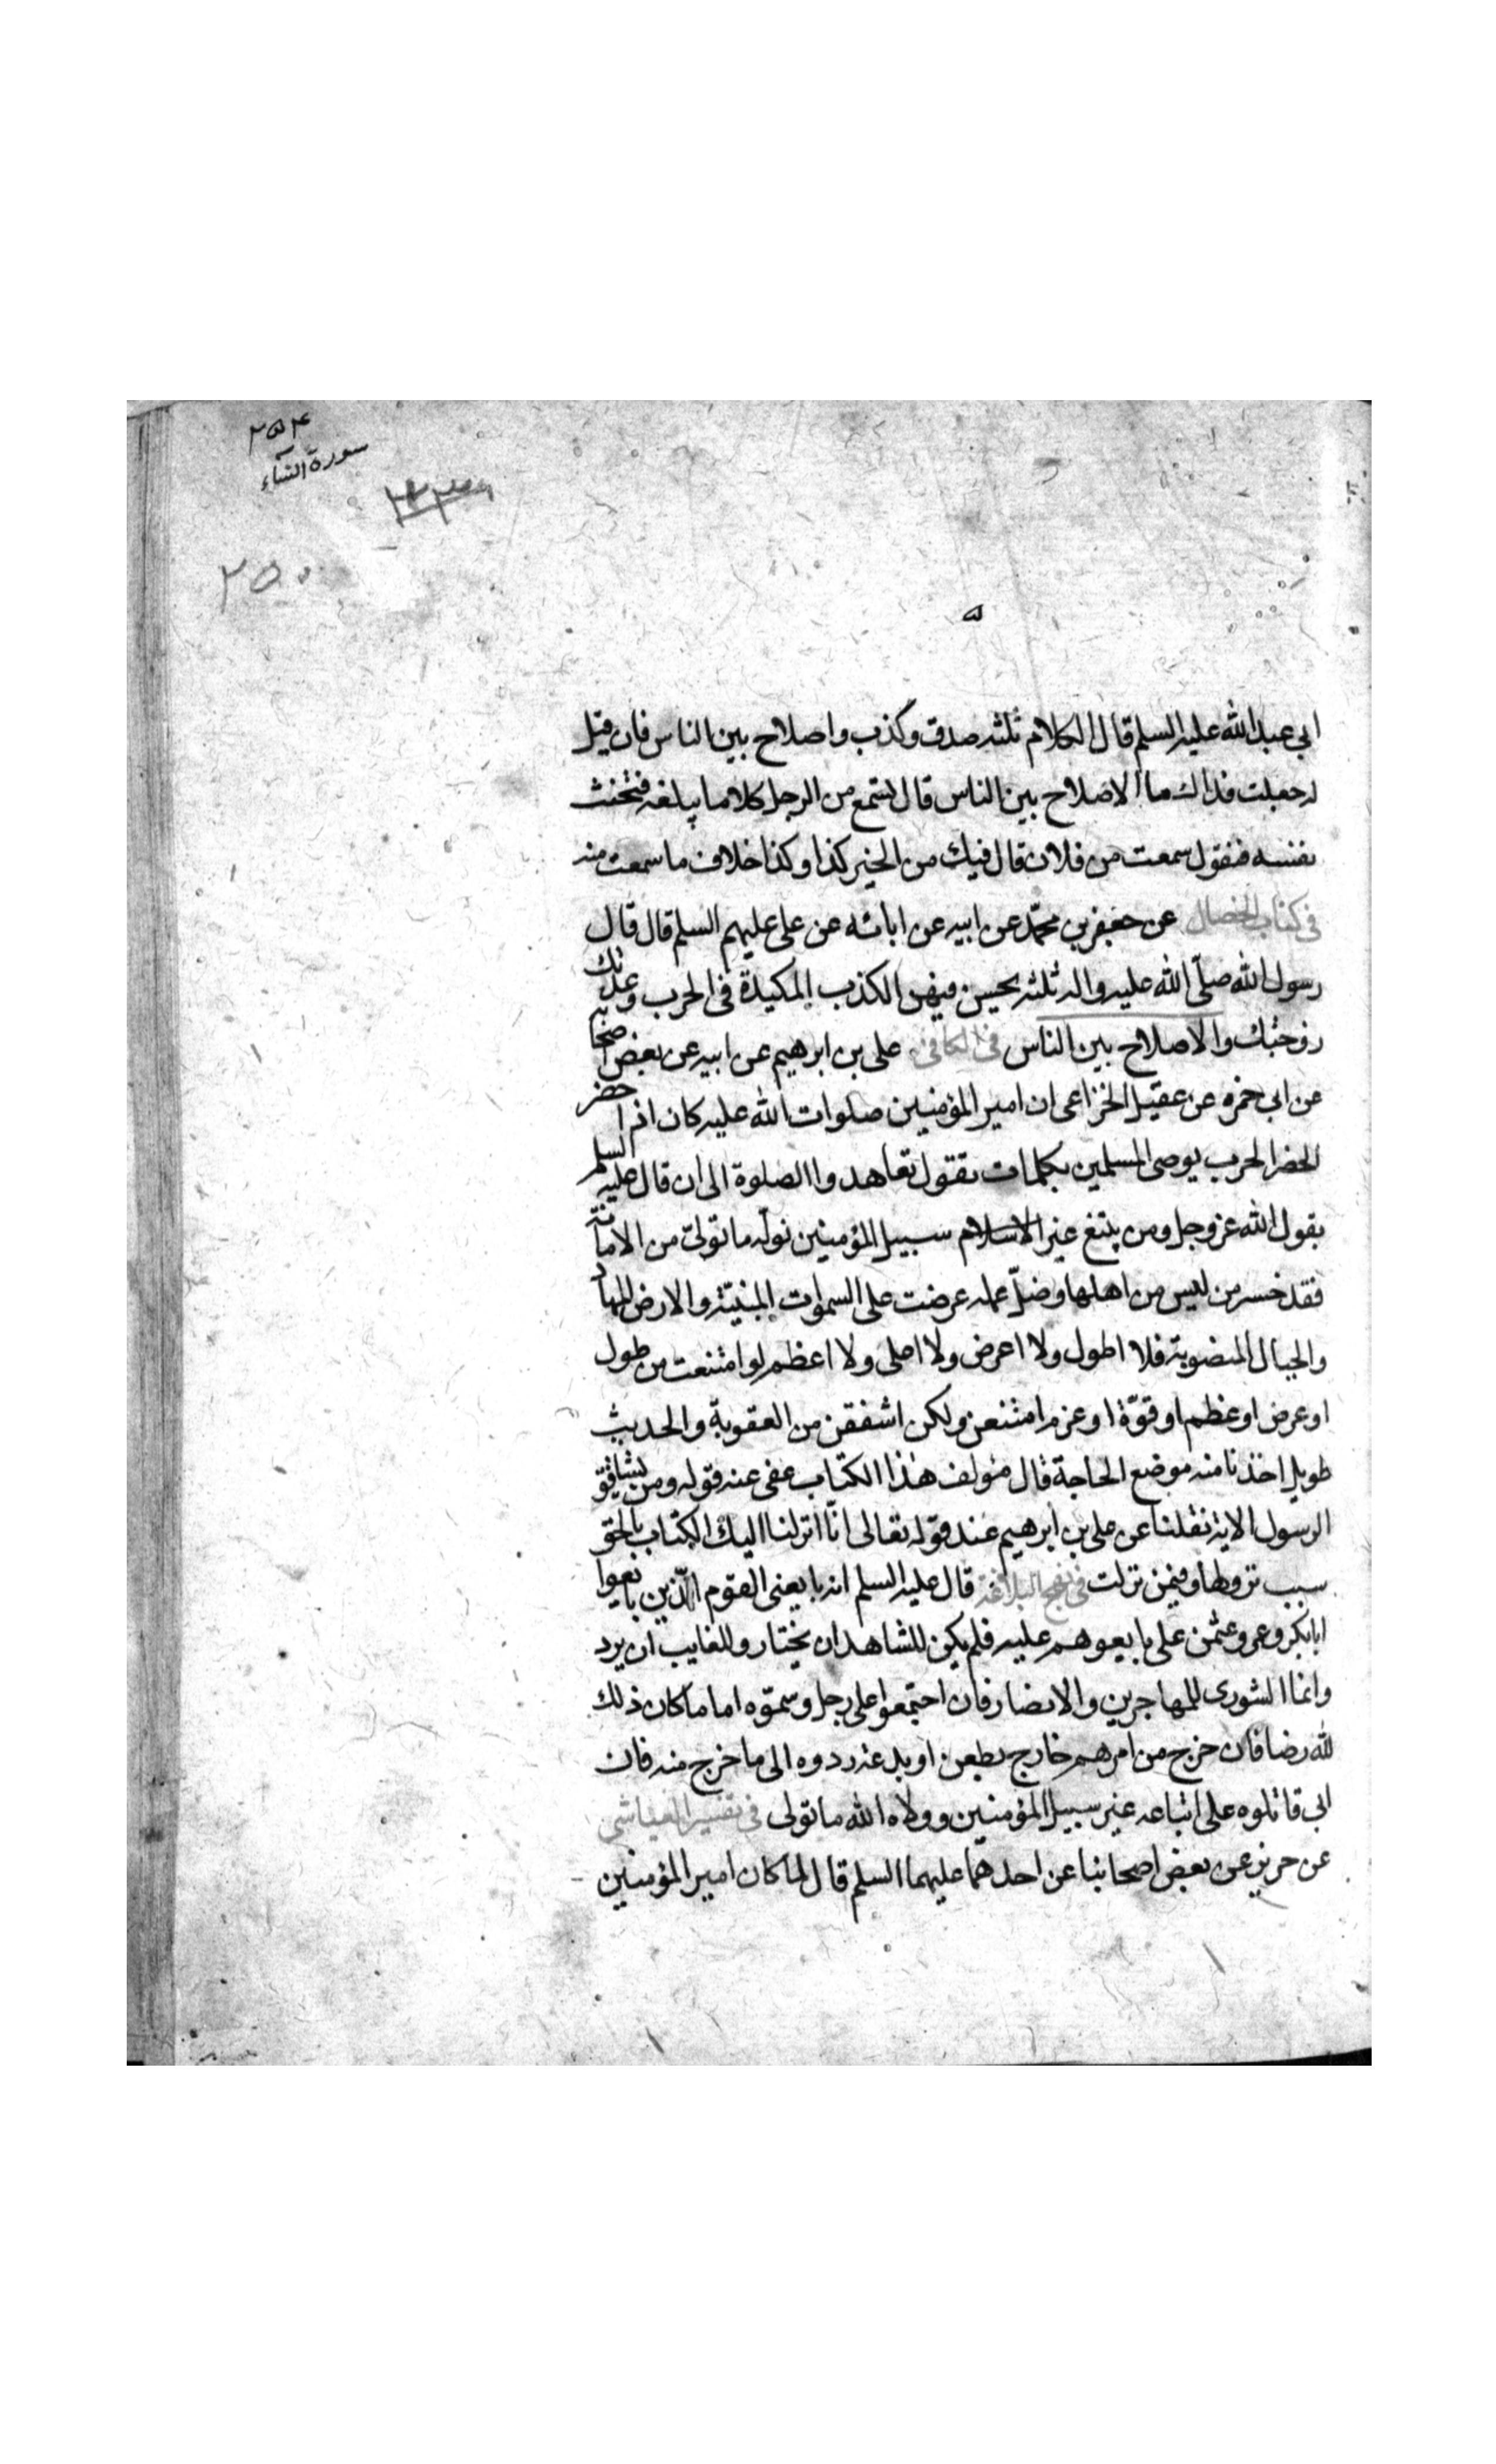 ٢٥٤
سورة النساء
٢٥٠
ابي عبد الله عليه السلم قال الكلام ثلثه صدق وكذب واصلاح بين الناس فان قيل
له جعلت فداك ما الاصلاح بين الناس قال تستمع من الرجل كلاما يبلغه فتخنث
نفسه فتقول سمعت من فلان قال فيك من الخير كذا وكذا خلاف ما سمعت منه
في كتاب الخصال عن جعفر بن محمّد عن ابيه عن ابائه عن على عليهم السلم قال قال
رسول الله صلّى الله عليه واله ثلثه يحسن فيهن الكذب المكيدة فى الحرب وعدتك
زوجتك والاصلاح بين الناس فى الكافى على بن ابرهيم عن ابيه عن بعض اصحابه
عن ابى حمزه عن عقيل الخزاعى ان امير المؤمنين صلوات الله عليه كان اذا حضر
الحرب يوصى المسلمين بكلمات يقول تعاهدوا الصلوة الى ان قال عليه السلم
يقول الله عز وجل ومن يتبع غير الاسلام سبيل المؤمنين نولّه ما تولىّ من الامانة
فقد خسر من ليس من اهلها وضلّ عمله عرضت على السموات المبنيّة والارض المهاد
والجبال المنصوبة فلا اطول ولا اعرض ولا اعلى ولا اعظم لو امتنعت من طول
او عرض او عظم او قوّة او عز امتنعن ولكن اشفقن من العقوبة والحديث
طويل اخذنا منه موضع الحاجة قال مؤلف هذا الكتاب عفى عنه قوله ومن يشاقق
الرسول الاية نقلنا عن على بن ابرهيم عند قوله تعالى انّا انزلنا اليك الكتاب بالحق
سبب نزولها وفيمن نزلت فى نهج البلاغة قال عليه السلم انه بايعنى القوم الّذين بايعوا
ابابكر وعمر وعثمن على ما بايعوهم عليه فلم يكن للشاهد ان يختار ولا للغايب ان يرد
وانما الشورى للمهاجرين والانصار فان اجتمعوا على رجل وسمّوه اماما كان ذلك
لله رضا فان خرج من امرهم خارج بطعن او بدعة ردوه الى ما خرج منه فان
ابى قاتلوه على اتباعه غير سبيل المؤمنين وولاه الله ما تولى فى تفسير العياشى
عن حريز عن بعض اصحابنا عن احدهما عليهما السلم قال لما كان امير المؤمنين